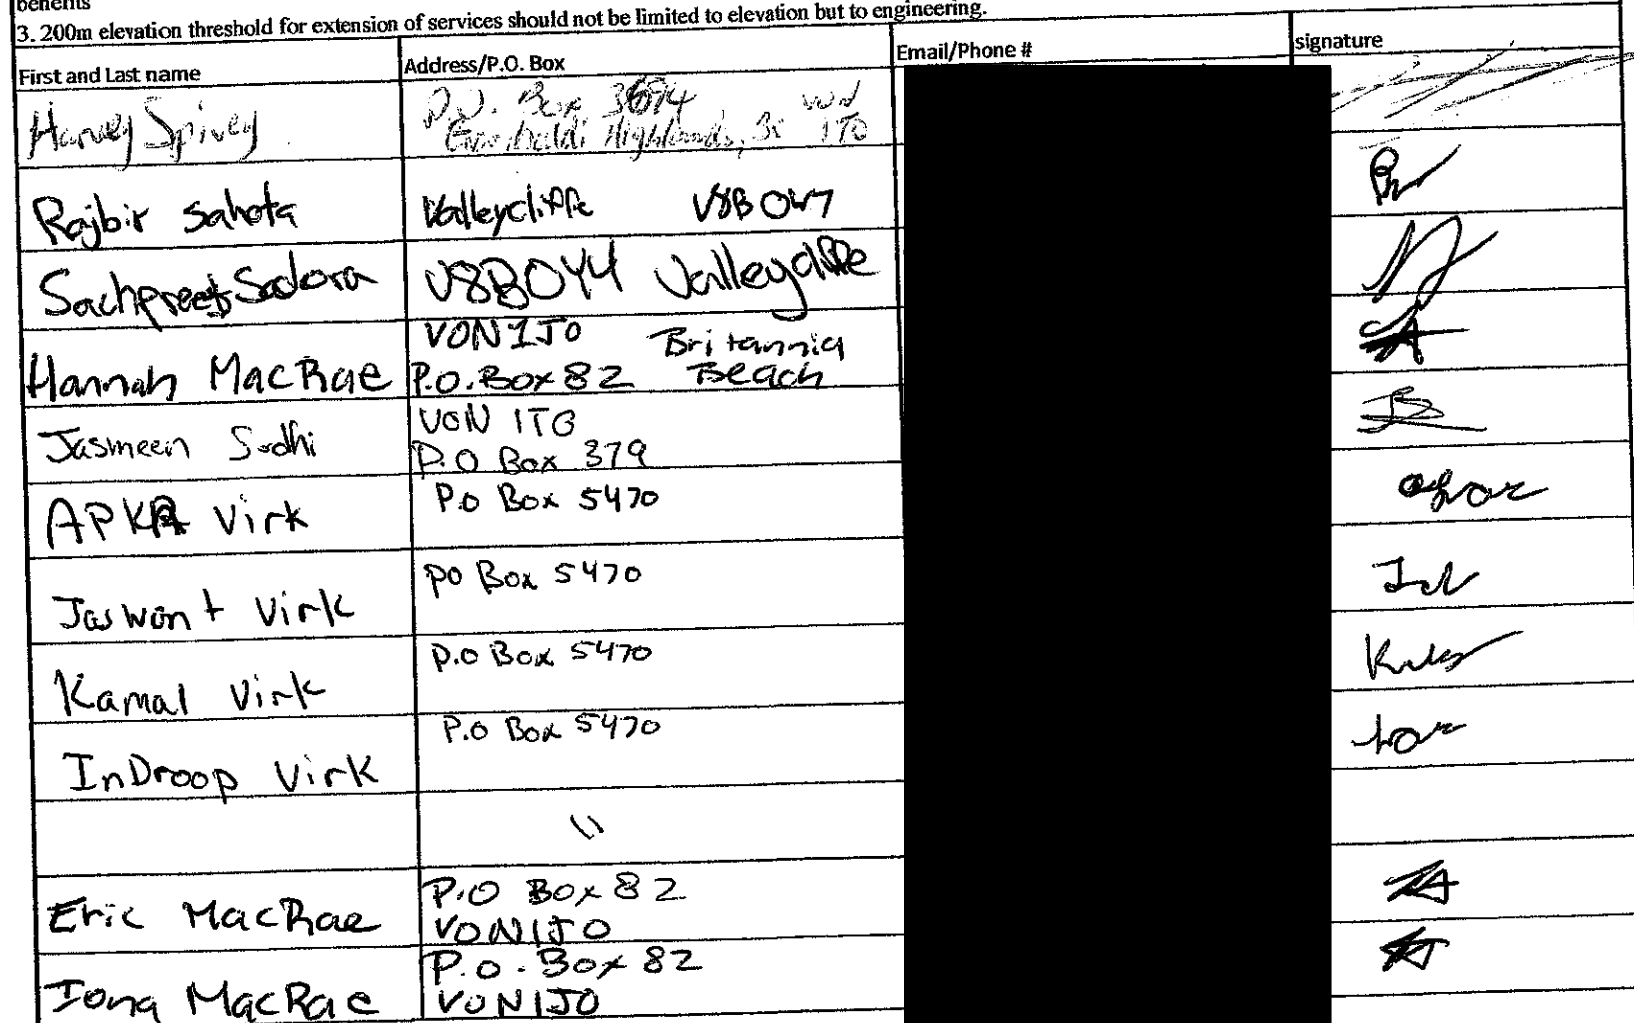 benefits
3. 200m elevation threshold for extension of services should not be limited to elevation but to engineering.
First and Last name Address/P.O. Box Email/Phone # signature
Harvey Spivey P.O. Box 3674 V0N
Garibaldi Highlands, BC 1T0
Rajbir Sahota Valleycliffe V8B 0W7
Sachpreet V8B0Y4 Valleycliffe
V0N1J0 Britannia
Hannah MacRae P.O. Box 82 Beach
V0N 1T0
Jasmeen Sodhi P.O Box 379
Virk P.O Box 5470
Jaswant Virk PO Box 5470
Kamal Virk P.O Box 5470
InDroop Virk P.O Box 5470
"
P.O Box 82
Eric MacRae V0N1J0
P.O. Box 82
Iona MacRae V0N1J0